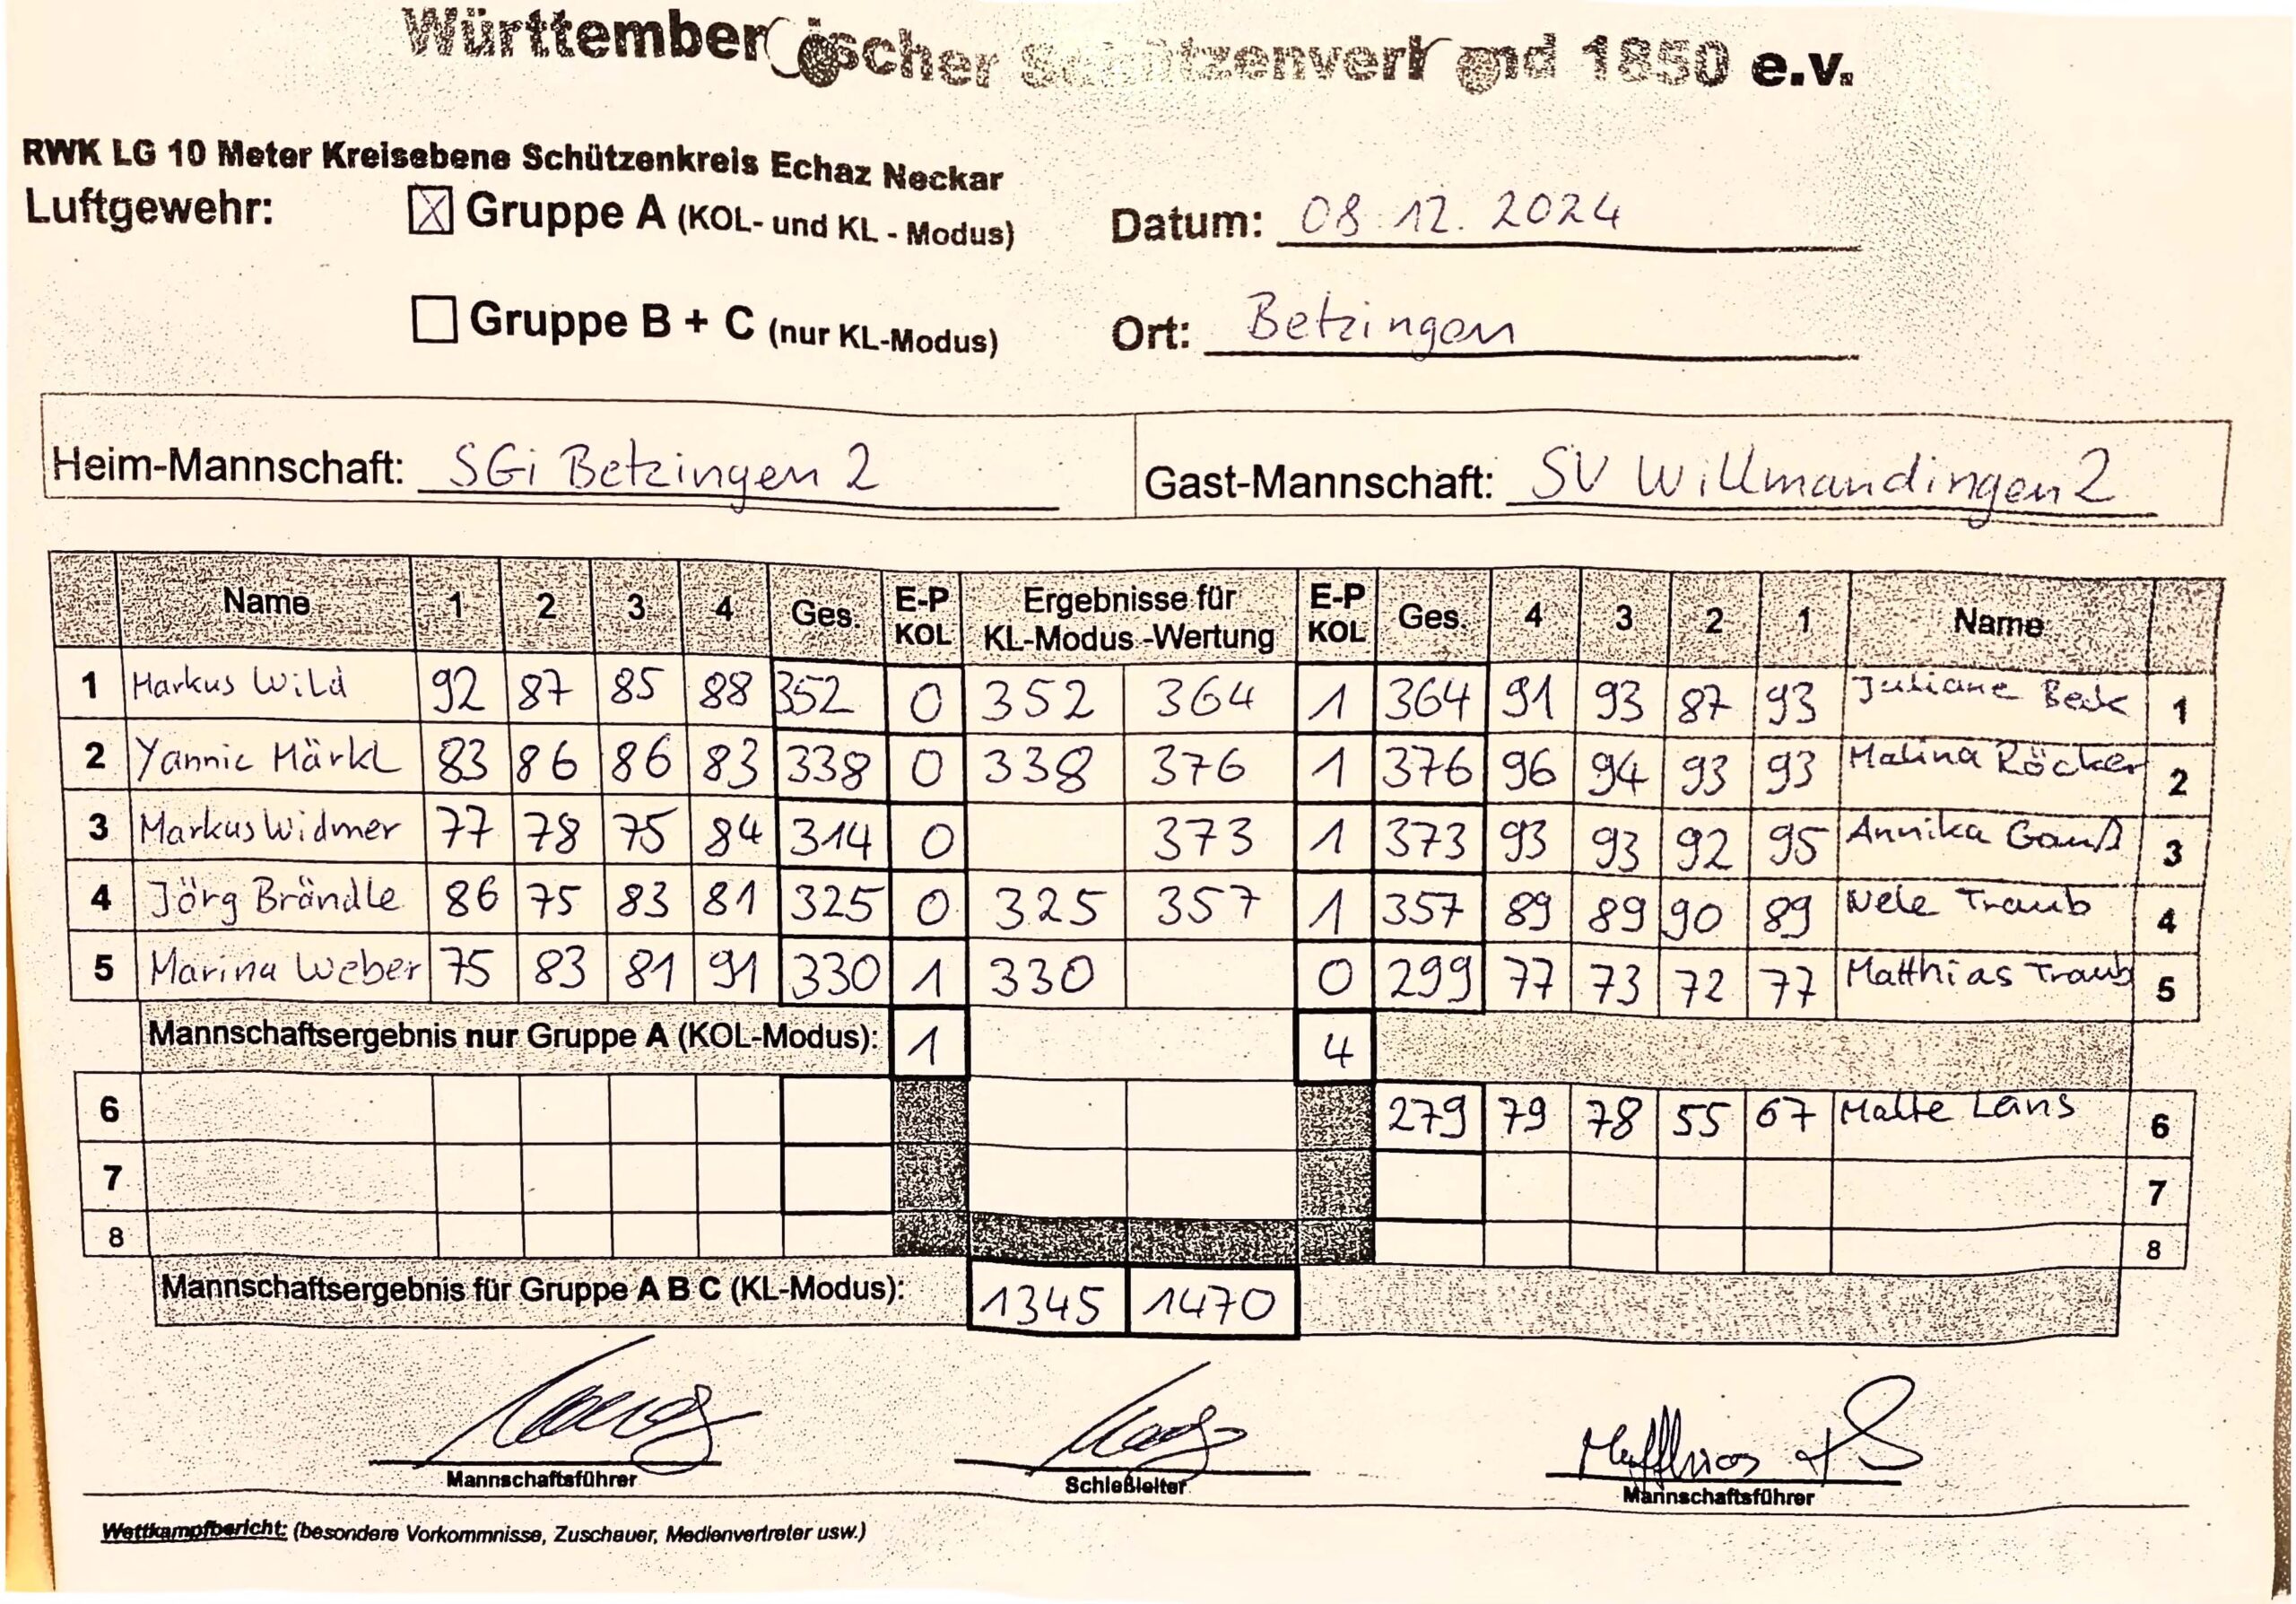 Württembergischer Schützenverband 1850 e.v.
RWK LG 10 Meter Kreisebene Schützenkreis Echaz Neckar
Luftgewehr: ☒ Gruppe A (KOL- und KL - Modus) Datum: 08.12.2024
☐ Gruppe B + C (nur KL-Modus) Ort: Betzingen
Heim-Mannschaft: SGi Betzingen 2 Gast-Mannschaft: SV Willmandingen 2
Name 1 2 3 4 Ges. E-P KOL Ergebnisse für KL-Modus -Wertung E-P KOL Ges. 4 3 2 1 Name
1 Markus Wild 92 87 85 88 352 0 352 364 1 364 91 93 87 93 Juliane Beck 1
2 Yannic Märkl 83 86 86 83 338 0 338 376 1 376 96 94 93 93 Malina Röcker 2
3 Markus Widmer 77 78 75 84 314 0 373 1 373 93 93 92 95 Annika Gauß 3
4 Jörg Brändle 86 75 83 81 325 0 325 357 1 357 89 89 90 89 Nele Traub 4
5 Marina Weber 75 83 81 91 330 1 330 0 299 77 73 72 77 Matthias Traub 5
Mannschaftsergebnis nur Gruppe A (KOL-Modus): 1 4
6 279 79 78 55 67 Malte Lains 6
7 7
8 8
Mannschaftsergebnis für Gruppe A B C (KL-Modus): 1345 1470
Mannschaftsführer Schießleiter Mannschaftsführer
Wettkampfbericht: (besondere Vorkommnisse, Zuschauer, Medienvertreter usw.)